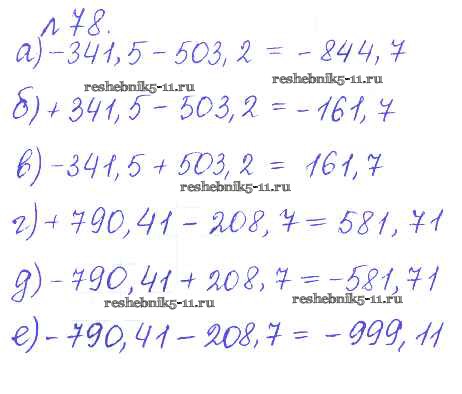 № 78.
а) - 341,5 - 503,2 = - 844,7
reshebnik5-11.ru
reshebnik5-11.ru
б) + 341,5 - 503,2 = - 161,7
в) - 341,5 + 503,2 = 161,7
reshebnik5-11.ru
г) + 790,41 - 208,7 = 581,71
д) - 790,41 + 208,7 = - 581,71
reshebnik5-11.ru
reshebnik5-11.ru
е) - 790,41 - 208,7 = - 999,11